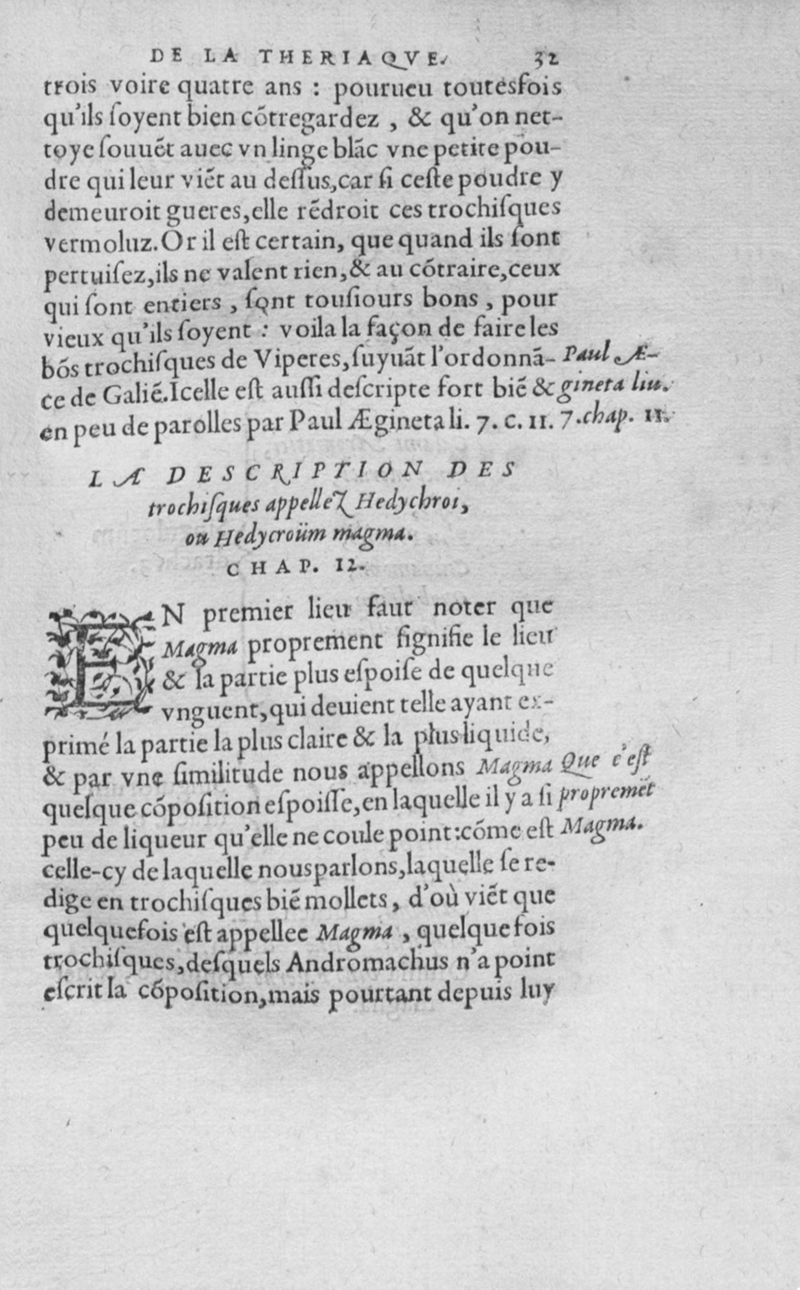 DE LA THERIAQVE. 32
trois voire quatre ans : pourueu toutesfois
qu'ils ſoyent bien cõtregardez , & qu'on net-
toye ſouuẽt auec vn linge blãc vne petite pou-
dre qui leur viẽt au deſſus,car ſi ceſte poudre y
demeuroit gueres,elle rẽdroit ces trochiſques
vermoluz.Or il eſt certain, que quand ils ſont
pertuiſez,ils ne valent rien,& au cõtraire,ceux
qui ſont entiers , ſont touſiours bons , pour
vieux qu'ils ſoyent : voila la façon de faire les
bõs trochiſques de Viperes,ſuyuãt l'ordonnã-
ce de Galiẽ.Icelle eſt auſſi deſcripte fort biẽ &
en peu de parolles par Paul Ægineta li. 7. c. 11.
Paul Æ-
gineta liu.
7.chap. 11.
LA DESCRIPTION DES
trochiſques appellez Hedychroi,
ou Hedycroüm magma.
CHAP. 12.
EN premier lieu faut noter que
Magma proprement ſignifie le lieu
& la partie plus eſpoiſe de quelque
vnguent,qui deuient telle ayant ex-
primé la partie la plus claire & la plus liquide,
& par vne ſimilitude nous appellons Magma
quelque cõpoſition eſpoiſſe,en laquelle il y a ſi
peu de liqueur qu'elle ne coule point:cõme eſt
Que c'eſt
propremẽt
Magma.
celle-cy de laquelle nous parlons,laquelle ſe re-
dige en trochiſques biẽ mollets, d'où viẽt que
quelquefois eſt appellee Magma , quelquefois
trochiſques,deſquels Andromachus n'a point
eſcrit la cõpoſition,mais pourtant depuis luy